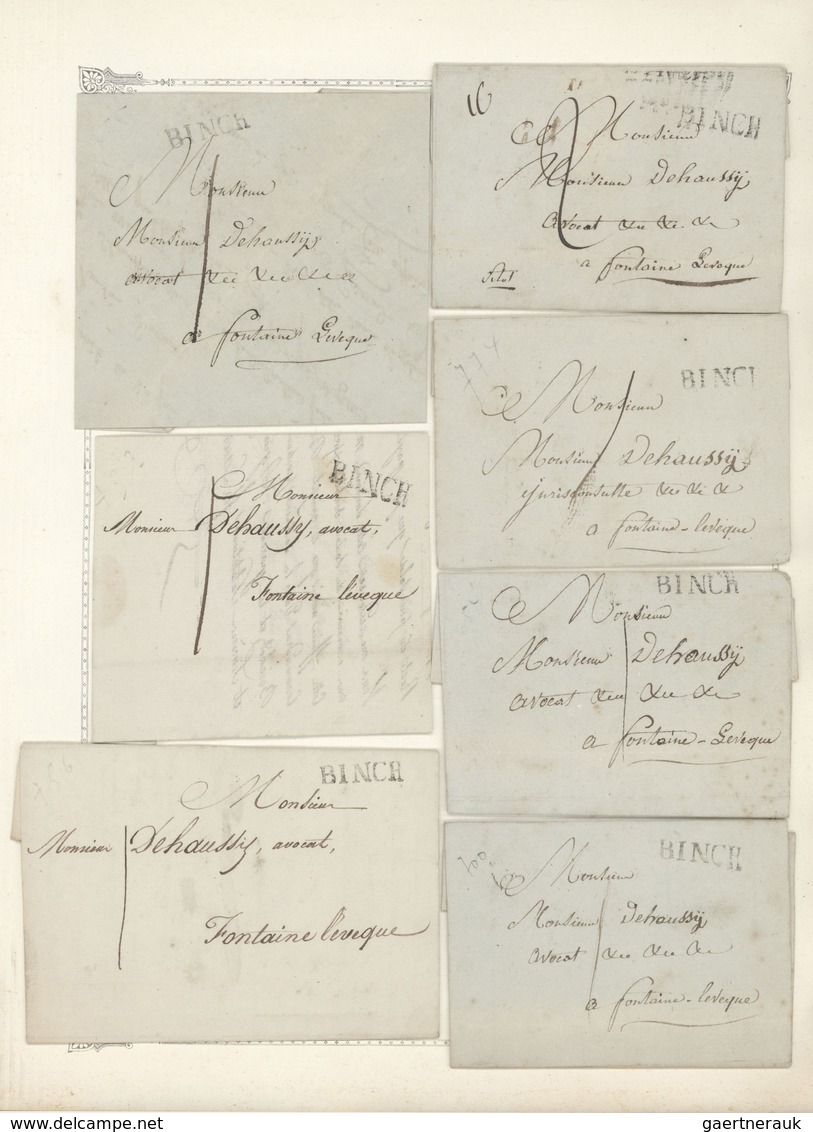 BINCH
Monsieur
Monsieur Dehaussÿ
avocat &c &c &c
a fontaine Leveque
16
BINCH
Monsieur
Monsieur Dehaussÿ
avocat &c &c &c
a fontaine Leveque
774
BINCH
Monsieur
Monsieur Dehaussÿ
jurisconsulte &c &c &
a fontaine-leveque
BINCH
Monsieur
Monsieur Dehaussy, avocat,
Fontaine lèveque
BINCH
Monsieur
Monsieur Dehaussÿ
avocat &c &c &c
a fontaine-Leveque
BINCH
Monsieur
Monsieur Dehaussy, avocat,
Fontaine lèveque
700
BINCH
Monsieur
Monsieur Dehaussÿ
avocat &c &c &c
a fontaine-leveque
www.delcampe.net
gaertnerauk